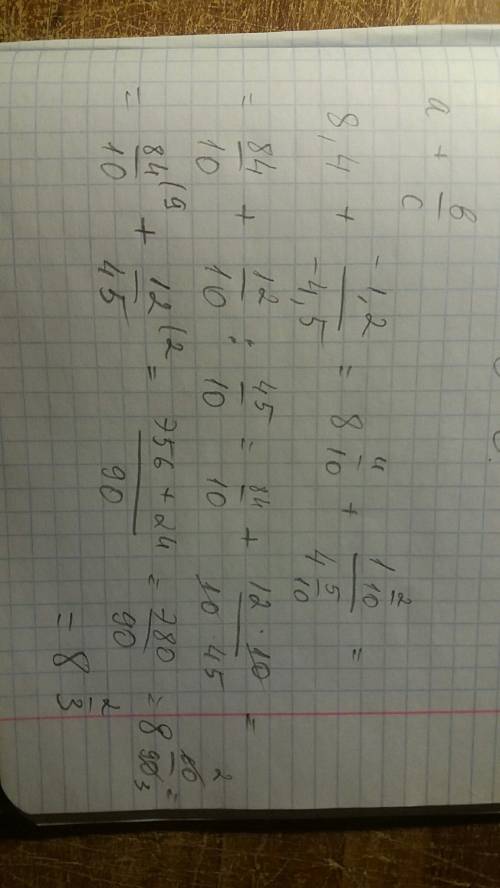 a + b/c
8,4 + -1,2/-4,5 = 8 4/10 + 1 2/10 / 4 5/10 =
= 84/10 + 12/10 : 45/10 = 84/10 + 12·10/10·45 =
= 84(9/10 + 12(2/45 = 756+24/90 = 780/90 = 8 60/90 2/3 =
= 8 2/3